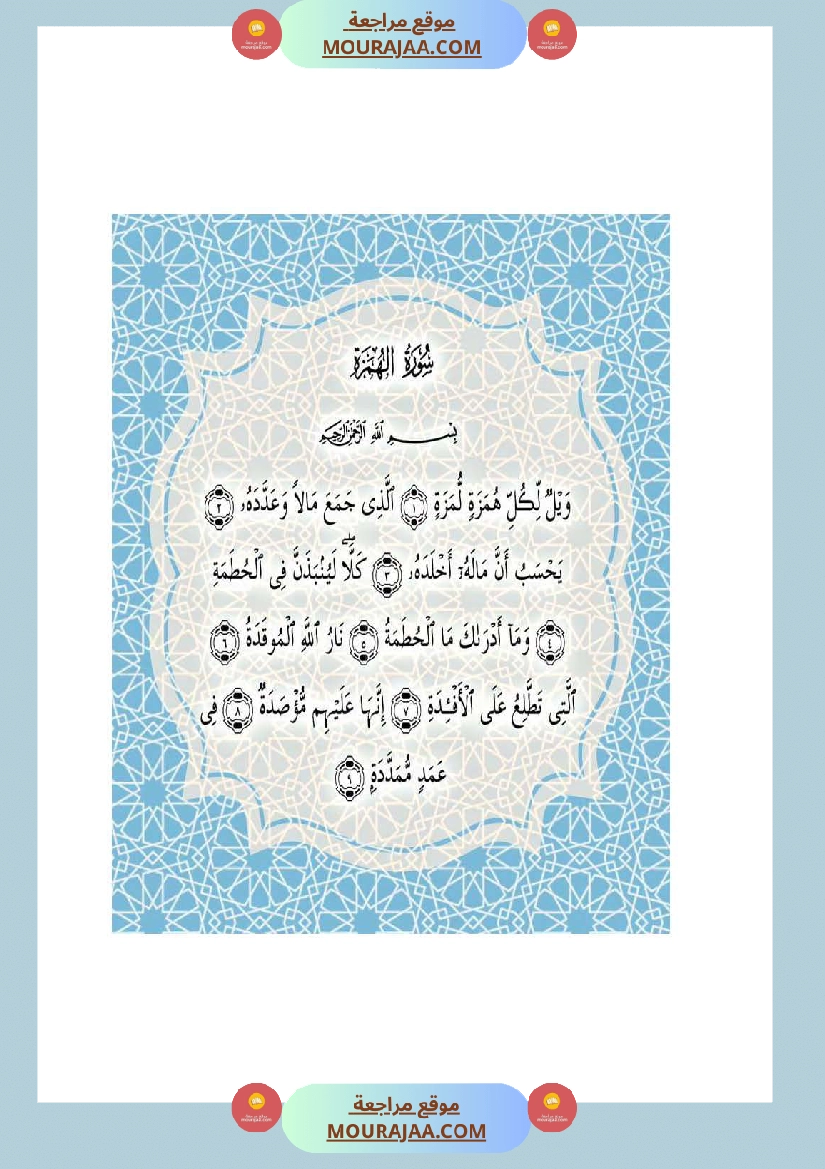 موقع مراجعة
MOURAJAA.COM
سُورَةُ الهُمَزَةِ
بِسْمِ اللَّهِ الرَّحْمَٰنِ الرَّحِيمِ
وَيْلٌ لِّكُلِّ هُمَزَةٍ لُّمَزَةٍ ١ ٱلَّذِى جَمَعَ مَالًا وَعَدَّدَهُۥ ٢
يَحْسَبُ أَنَّ مَالَهُۥٓ أَخْلَدَهُۥ ٣ كَلَّاۖ لَيُنۢبَذَنَّ فِى ٱلْحُطَمَةِ
٤ وَمَآ أَدْرَىٰكَ مَا ٱلْحُطَمَةُ ٥ نَارُ ٱللَّهِ ٱلْمُوقَدَةُ ٦
ٱلَّتِى تَطَّلِعُ عَلَى ٱلْأَفْـِٔدَةِ ٧ إِنَّهَا عَلَيْهِم مُّؤْصَدَةٌ ٨ فِى
عَمَدٍ مُّمَدَّدَةٍۭ ٩
موقع مراجعة
MOURAJAA.COM